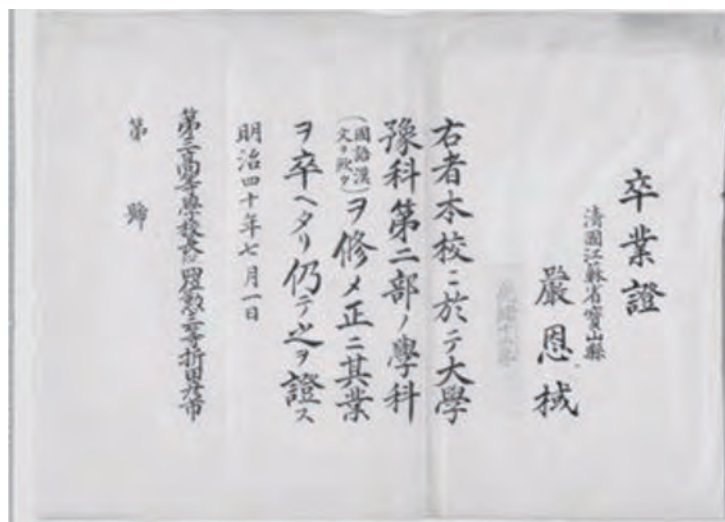 卒業證
清國江蘇省寶山縣
嚴恩棫
右者本校ニ於テ大學
豫科第二部ノ學科
(國語漢文ヲ欠ク)ヲ修メ正ニ其業
ヲ卒ヘタリ仍テ之ヲ證ス
明治四十年七月一日
第三高等學校長 勲三等折田彦市
第 號